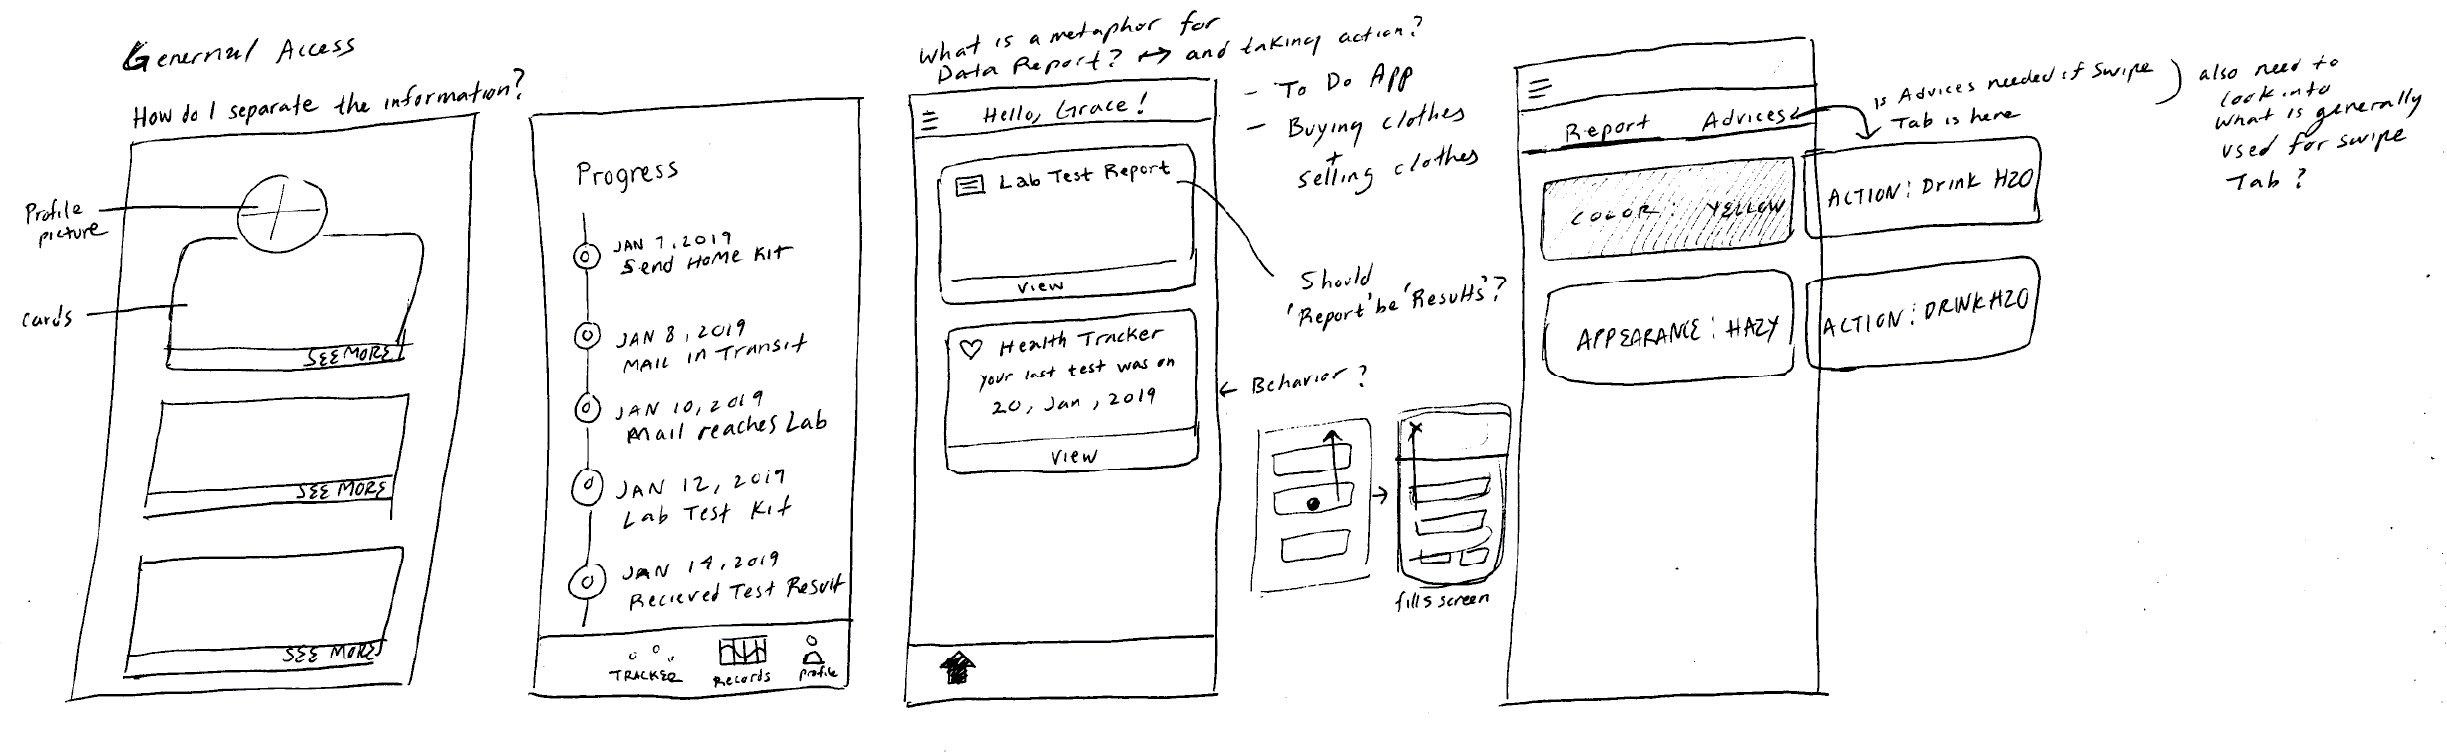 Genernal Access
How do I separate the information?
Profile
picture
Cards
SEE MORE
SEE MORE
SEE MORE
Progress
JAN 7, 2019
Send Home Kit
JAN 8, 2019
MAIL in Transit
JAN 10, 2019
Mail reaches Lab
JAN 12, 2019
Lab Test Kit
JAN 14, 2019
Recieved Test Result
TRACKER
Records
Profile
What is a metaphor for
Data Report? ↔ and taking action?
- To Do App
- Buying clothes
+
selling clothes
Hello, Grace!
Lab Test Report
View
Should
'Report' be 'Results'?
Health Tracker
Your last test was on
20, Jan, 2019
View
← Behavior?
fills screen
Report Advices
is Advices needed if swipe
Tab is here
also need to
look into
what is generally
used for swipe
Tab?
COLOR: YELLOW
ACTION: Drink H2O
APPEARANCE: HAZY
ACTION: DRINK H2O